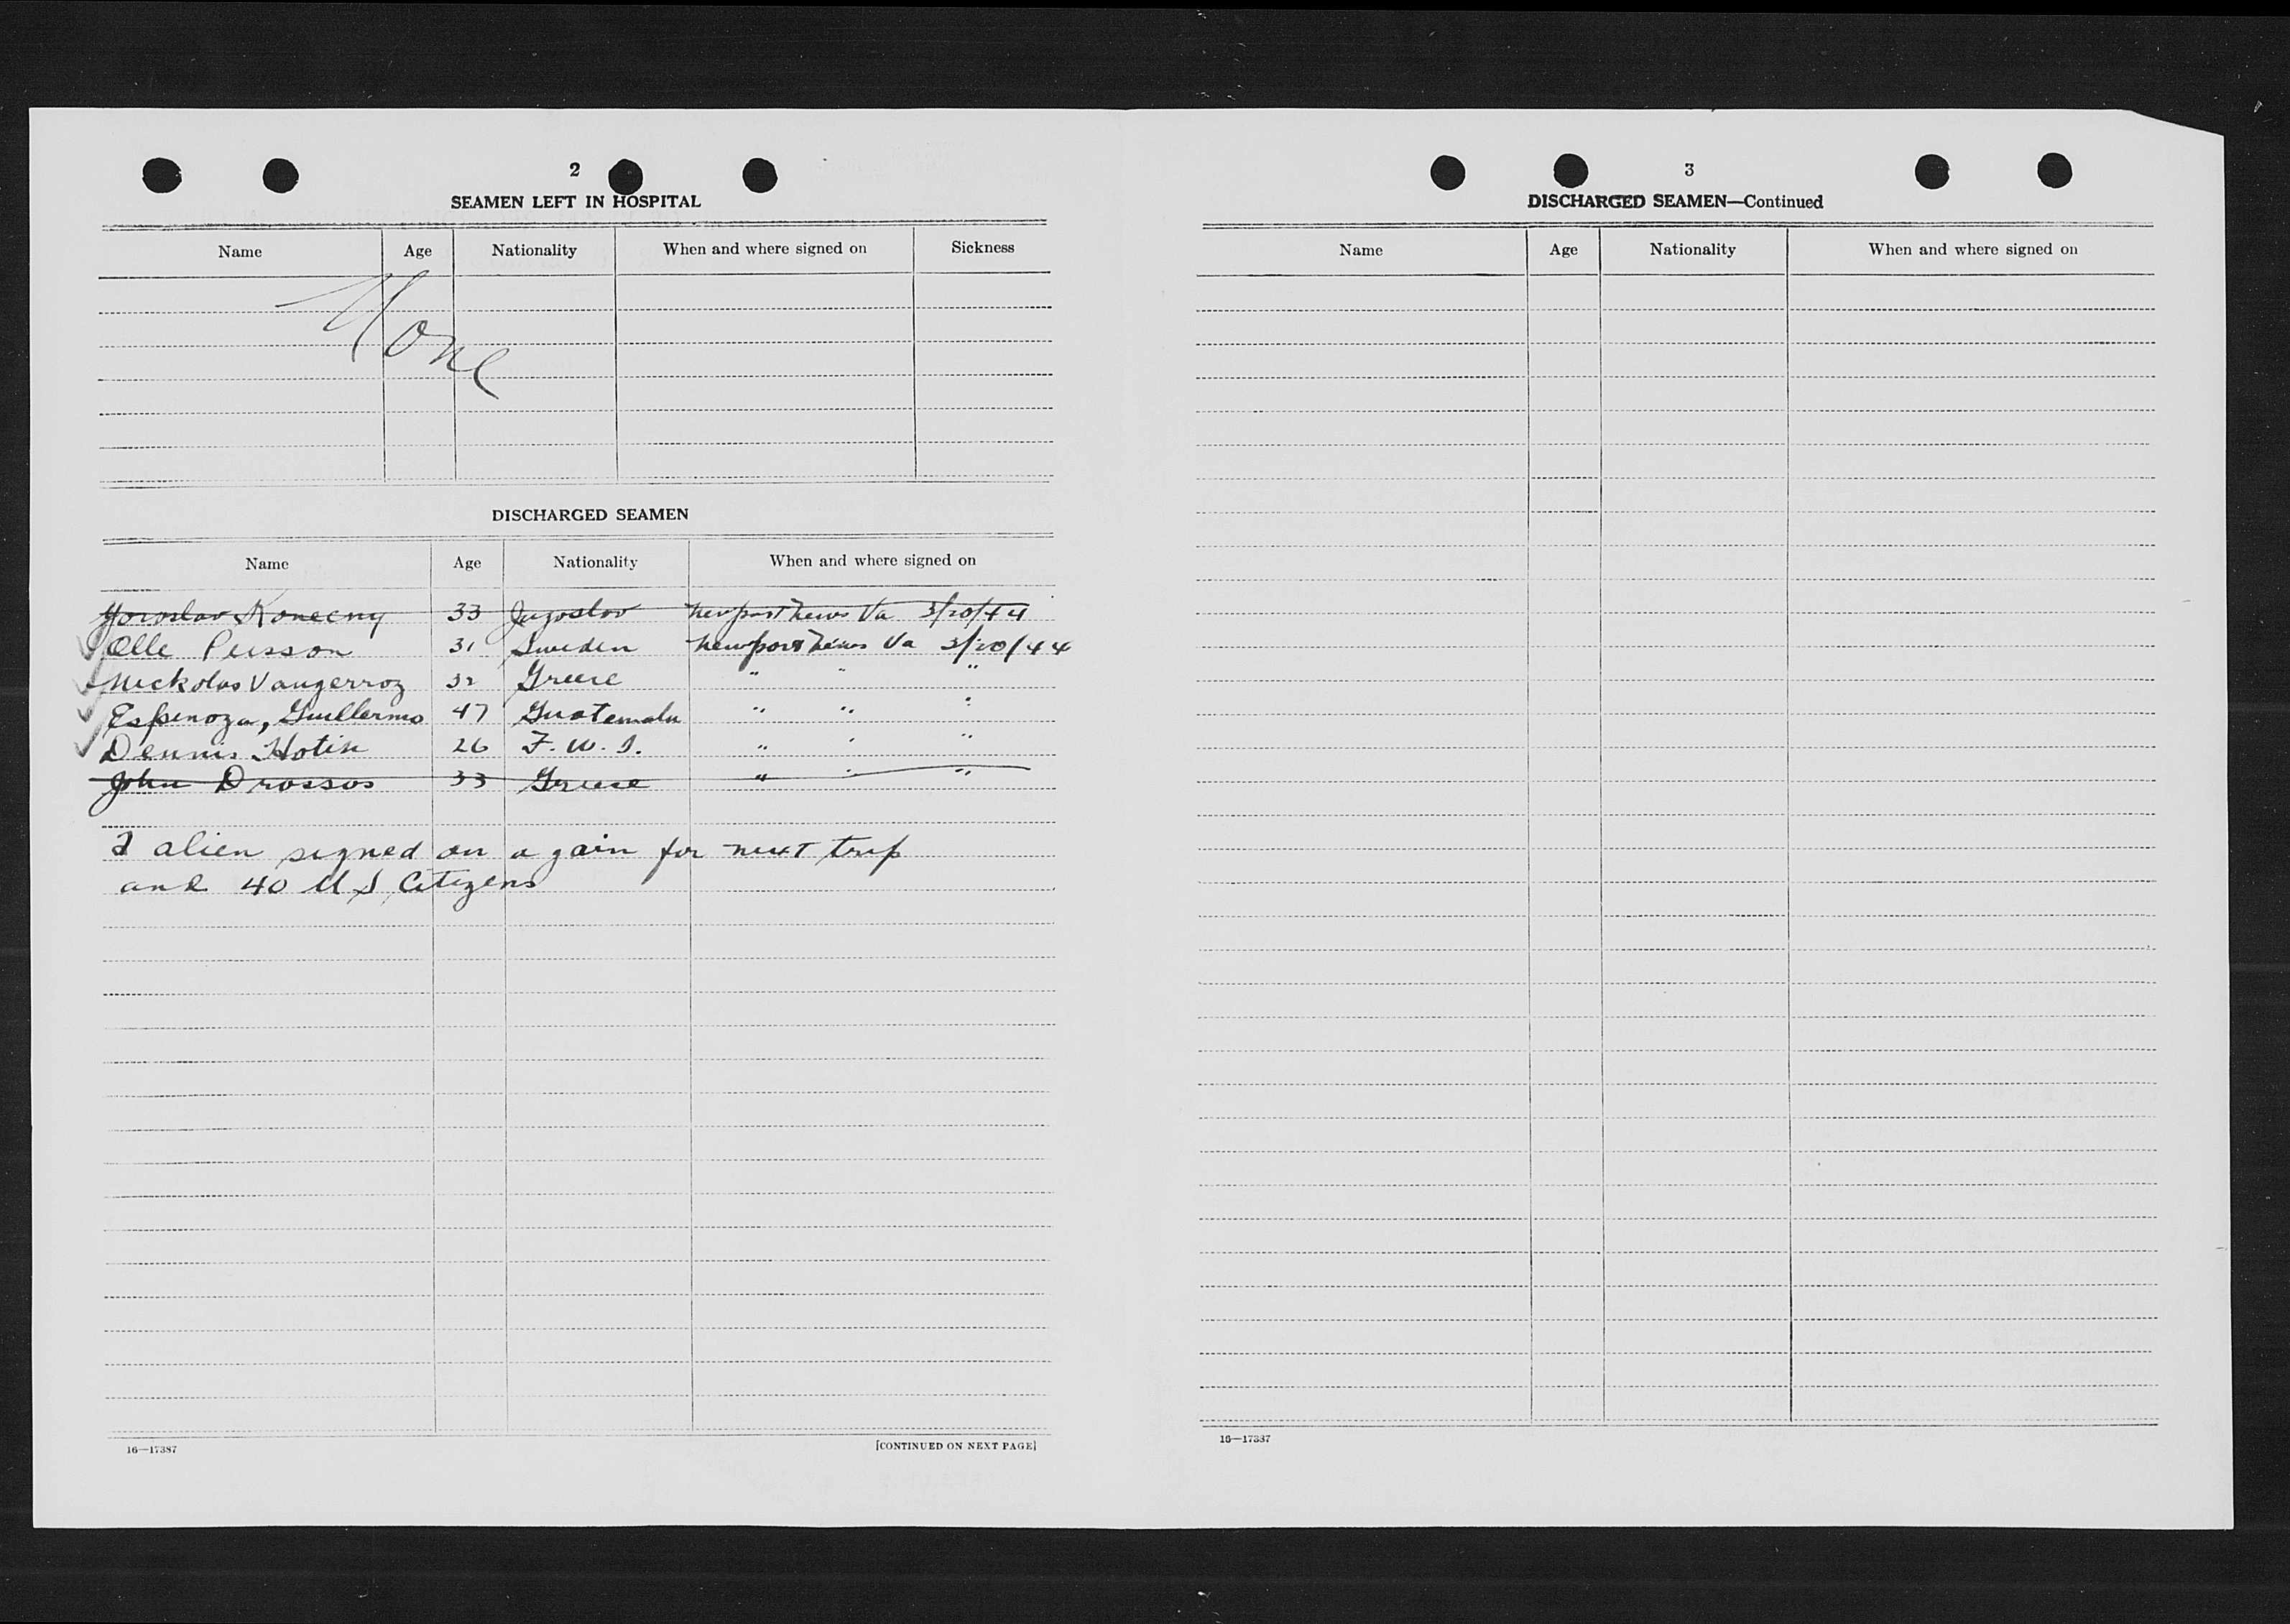 2
SEAMEN LEFT IN HOSPITAL
Name Age Nationality When and where signed on Sickness
None
DISCHARGED SEAMEN
Name Age Nationality When and where signed on
Yoroslav Konecny 33 Jugoslov Newport News Va 3/20/44
Olle Persson 31 Sweden Newport News Va 3/20/44
Nickolas Vangerroz 32 Greece " " "
Espinoza, Guillermo 47 Guatemala " " "
Dennis Hotin 26 F. W. I. " " "
John Drossos 33 Greece " " "
2 alien signed on again for next trip
and 40 U S Citizens
16—17387
[CONTINUED ON NEXT PAGE]
3
DISCHARGED SEAMEN—Continued
Name Age Nationality When and where signed on
16—17387